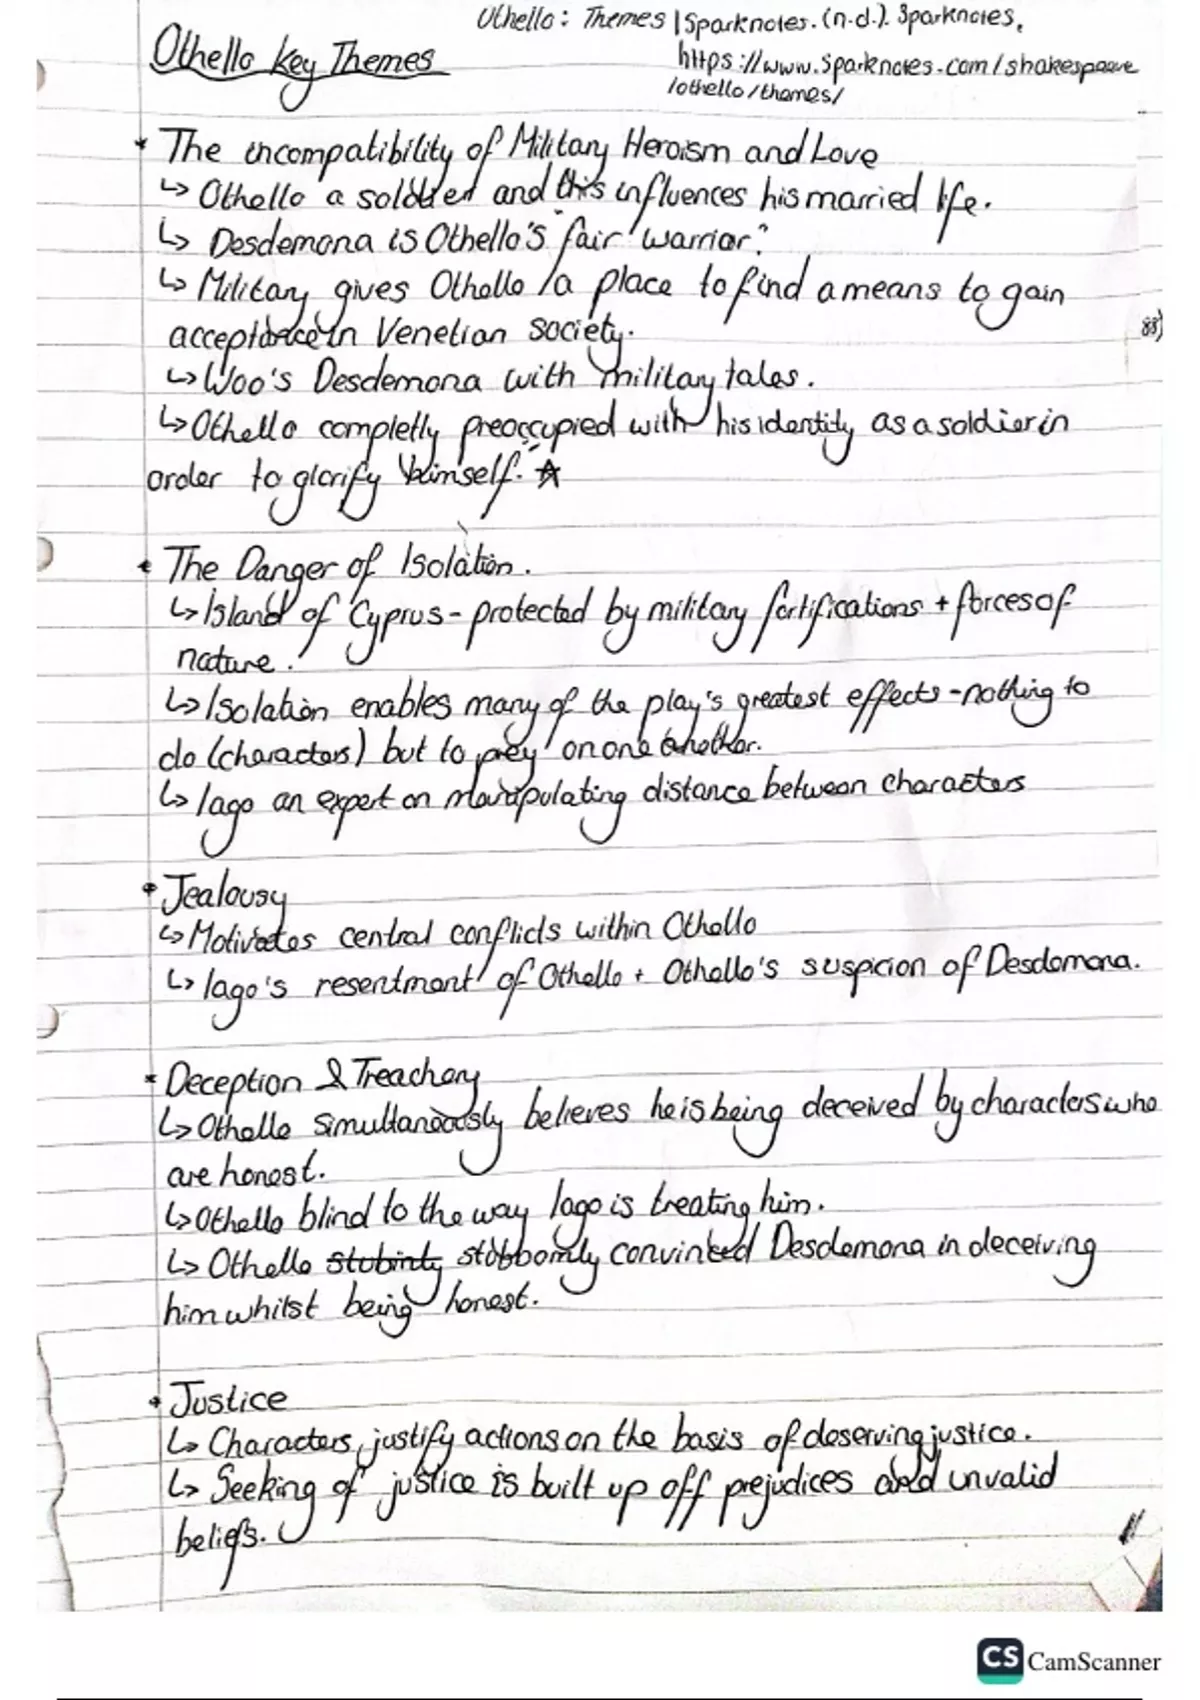 Othello: Themes | Sparknotes. (n.d.). Sparknotes.
Othello Key Themes
https://www.sparknotes.com/shakespeare
/othello/themes/
* The incompatibility of Military Heroism and Love
↳ Othello a soldier and this influences his married life.
↳ Desdemona is Othello's 'fair warrior'.
↳ Military gives Othello a place to find a means to gain
acceptance in Venetian society.
↳ Woo's Desdemona with military tales.
↳ Othello completly preoccupied with his identity as a soldier in
order to glorify himself. ☆
• The Danger of Isolation.
↳ Island of Cyprus - protected by military fortifications + forces of
nature.
↳ Isolation enables many of the play's greatest effects - nothing to
do (characters) but to 'prey' on one another.
↳ Iago an expert on manipulating distance between characters
• Jealousy
↳ Motivates central conflicts within Othello
↳ Iago's resentment of Othello + Othello's suspicion of Desdemona.
* Deception & Treachery
↳ Othello simultaneously believes he is being deceived by characters who
are honest.
↳ Othello blind to the way Iago is treating him.
↳ Othello stobbornly convinced Desdemona in deceiving
him whilst being honest.
• Justice
↳ Characters justify actions on the basis of deserving justice.
↳ Seeking of justice is built up off prejudices and unvalid
beliefs.
CS CamScanner